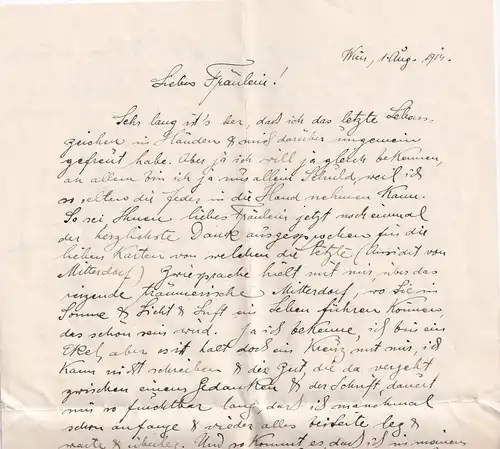 Wien, 1 Aug. 1914.
Liebes Fräulein!
Sehr lang ist's her, daß ich das letzte Lebens-
zeichen in Händen & mich darüber ungemein
gefreut habe. Aber ja ich will ja gleich bekennen,
an allem bin ich ja nur allein Schuld, weil ich
so selten die Feder in die Hand nehmen kann.
So sei Ihnen liebes Fräulein jetzt noch einmal
der herzlichste Dank ausgesprochen für die
lieben Karten von welchen die letzte (Ansicht von
Mitterdorf) Zwiesprache hielt mit mir, über das
träumerische Mitterdorf, wo Sie in
Sonne & Licht & Luft ein Leben führen können,
das schön sein wird. Ja ich bekenne, ich bin ein
Ekel, aber es ist halt doch ein Kreuz mit mir, ich
kann nicht schreiben & die Zeit die da vergeht
zwischen einem Gedanken & der Schrift, dauert
mir so furchtbar lang, daß ich manchmal
schon anfange & wieder alles beiseite leg &
warte & überleg. Und so kommt es, daß ich in meinem